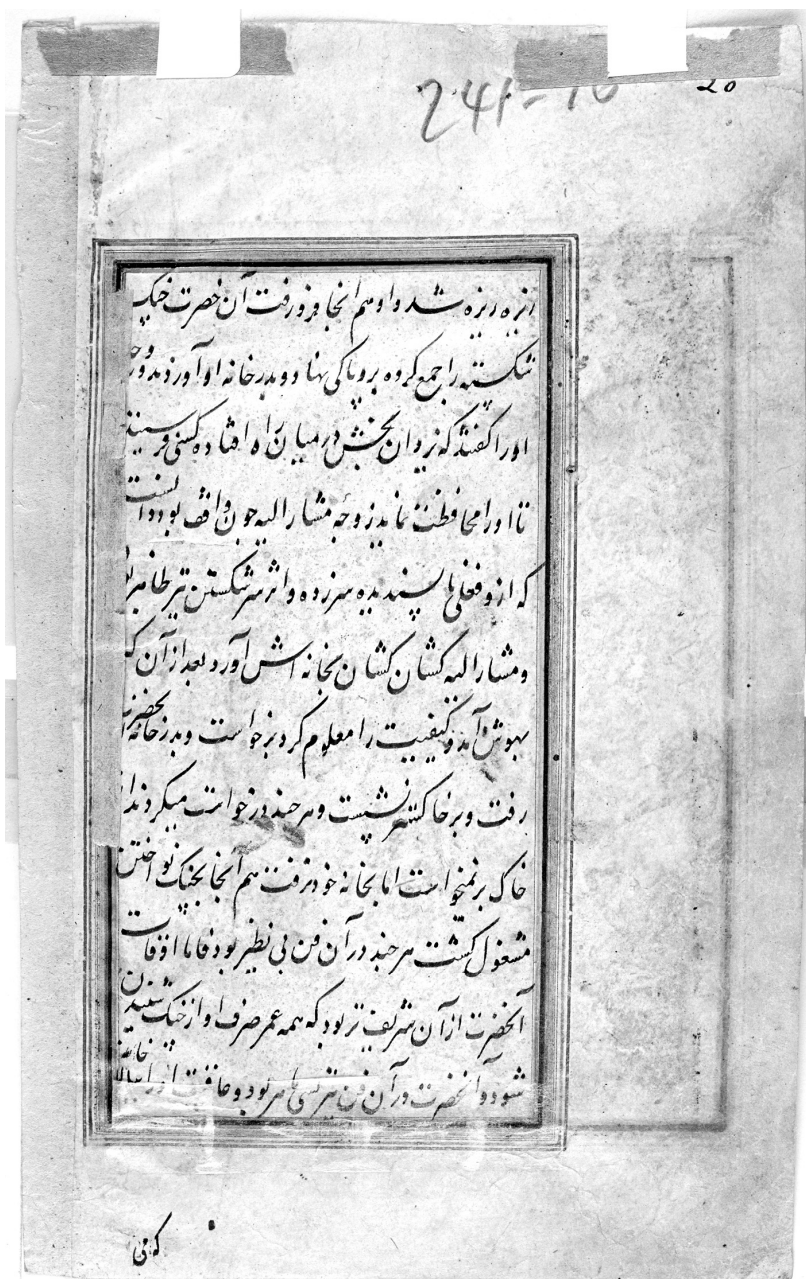 20
241-
ریزه ریزه شد و او هم انجا فرو رفت آن حضرت چنک
شکسته را جمع کرده برو پاکی نهاد و بدر خانه او آوردند و
او را گفتند که یزدان بخش در میان راه افتاده کسی
تا او را محافظت نماید زوجه مشار الیه چون واقف بود دانست
که ازو فعلی نا پسندیده سر زده و اثر سر شکستن نیز ظاهر
و مشار الیه کشان کشان بخانه اش آورد بعد از آن که
بهوش آمد و کیفیت را معلوم کرد برخواست و بدر خانه
رفت و بر خاکستر نشست و هر چند درخواست میکردند از
خاک بر نمیخواست اما بخانه خود نرفت هم آنجا بچنک نواختن
مشغول کشت هر چند در آن فن بی نظیر بود فاما اوقات
آنحضرت از آن شریف تر بود که همه عمر صرف آواز چنک شنیدن
شود و آنحضرت در آن فن نیز بسی ماهر بود و عاقبت او را
که می